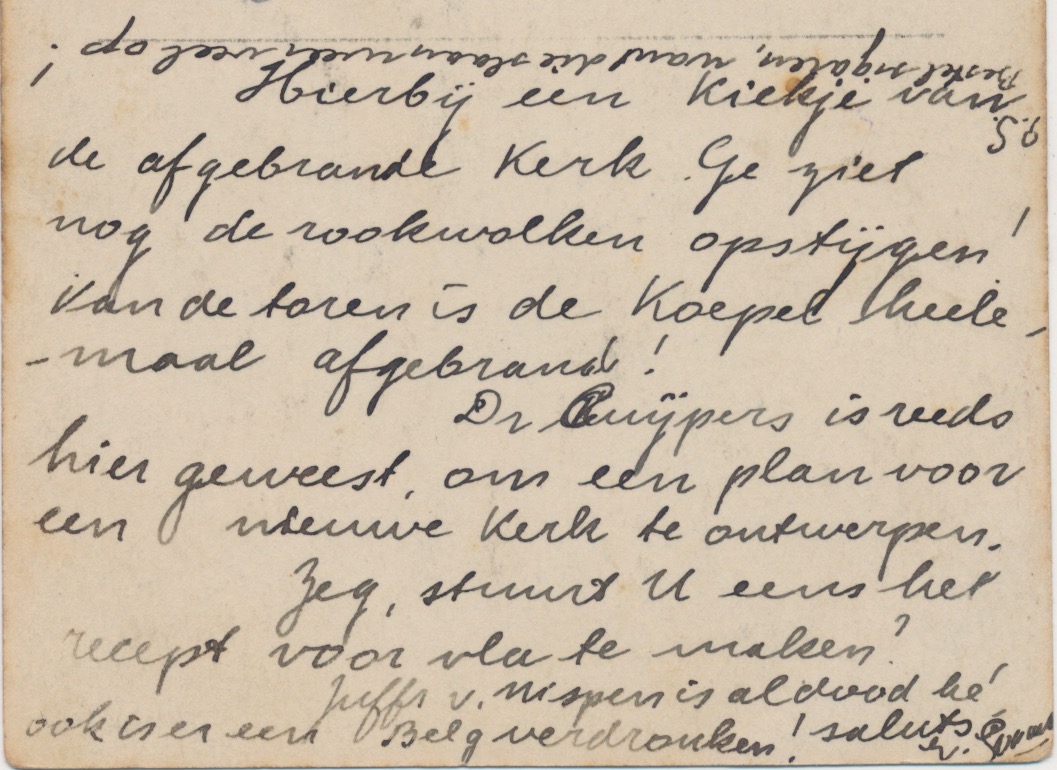 Hierbij een Kiekje van
de afgebrande Kerk. Ge ziet
nog de rookwolken opstijgen!
Van de toren is de Koepel heele-
-maal afgebrand!
Dr Cuÿpers is reeds
hier geweest, om een plan voor
een nieuwe Kerk te ontwerpen.
Zeg, stuurt U eens het
recept voor vla te maken?
Juffr v. Nispen is al dood hé
ook is er een Belg verdronken! saluts
P.S.
Bestel sigaren, want die slaan weer veel op!